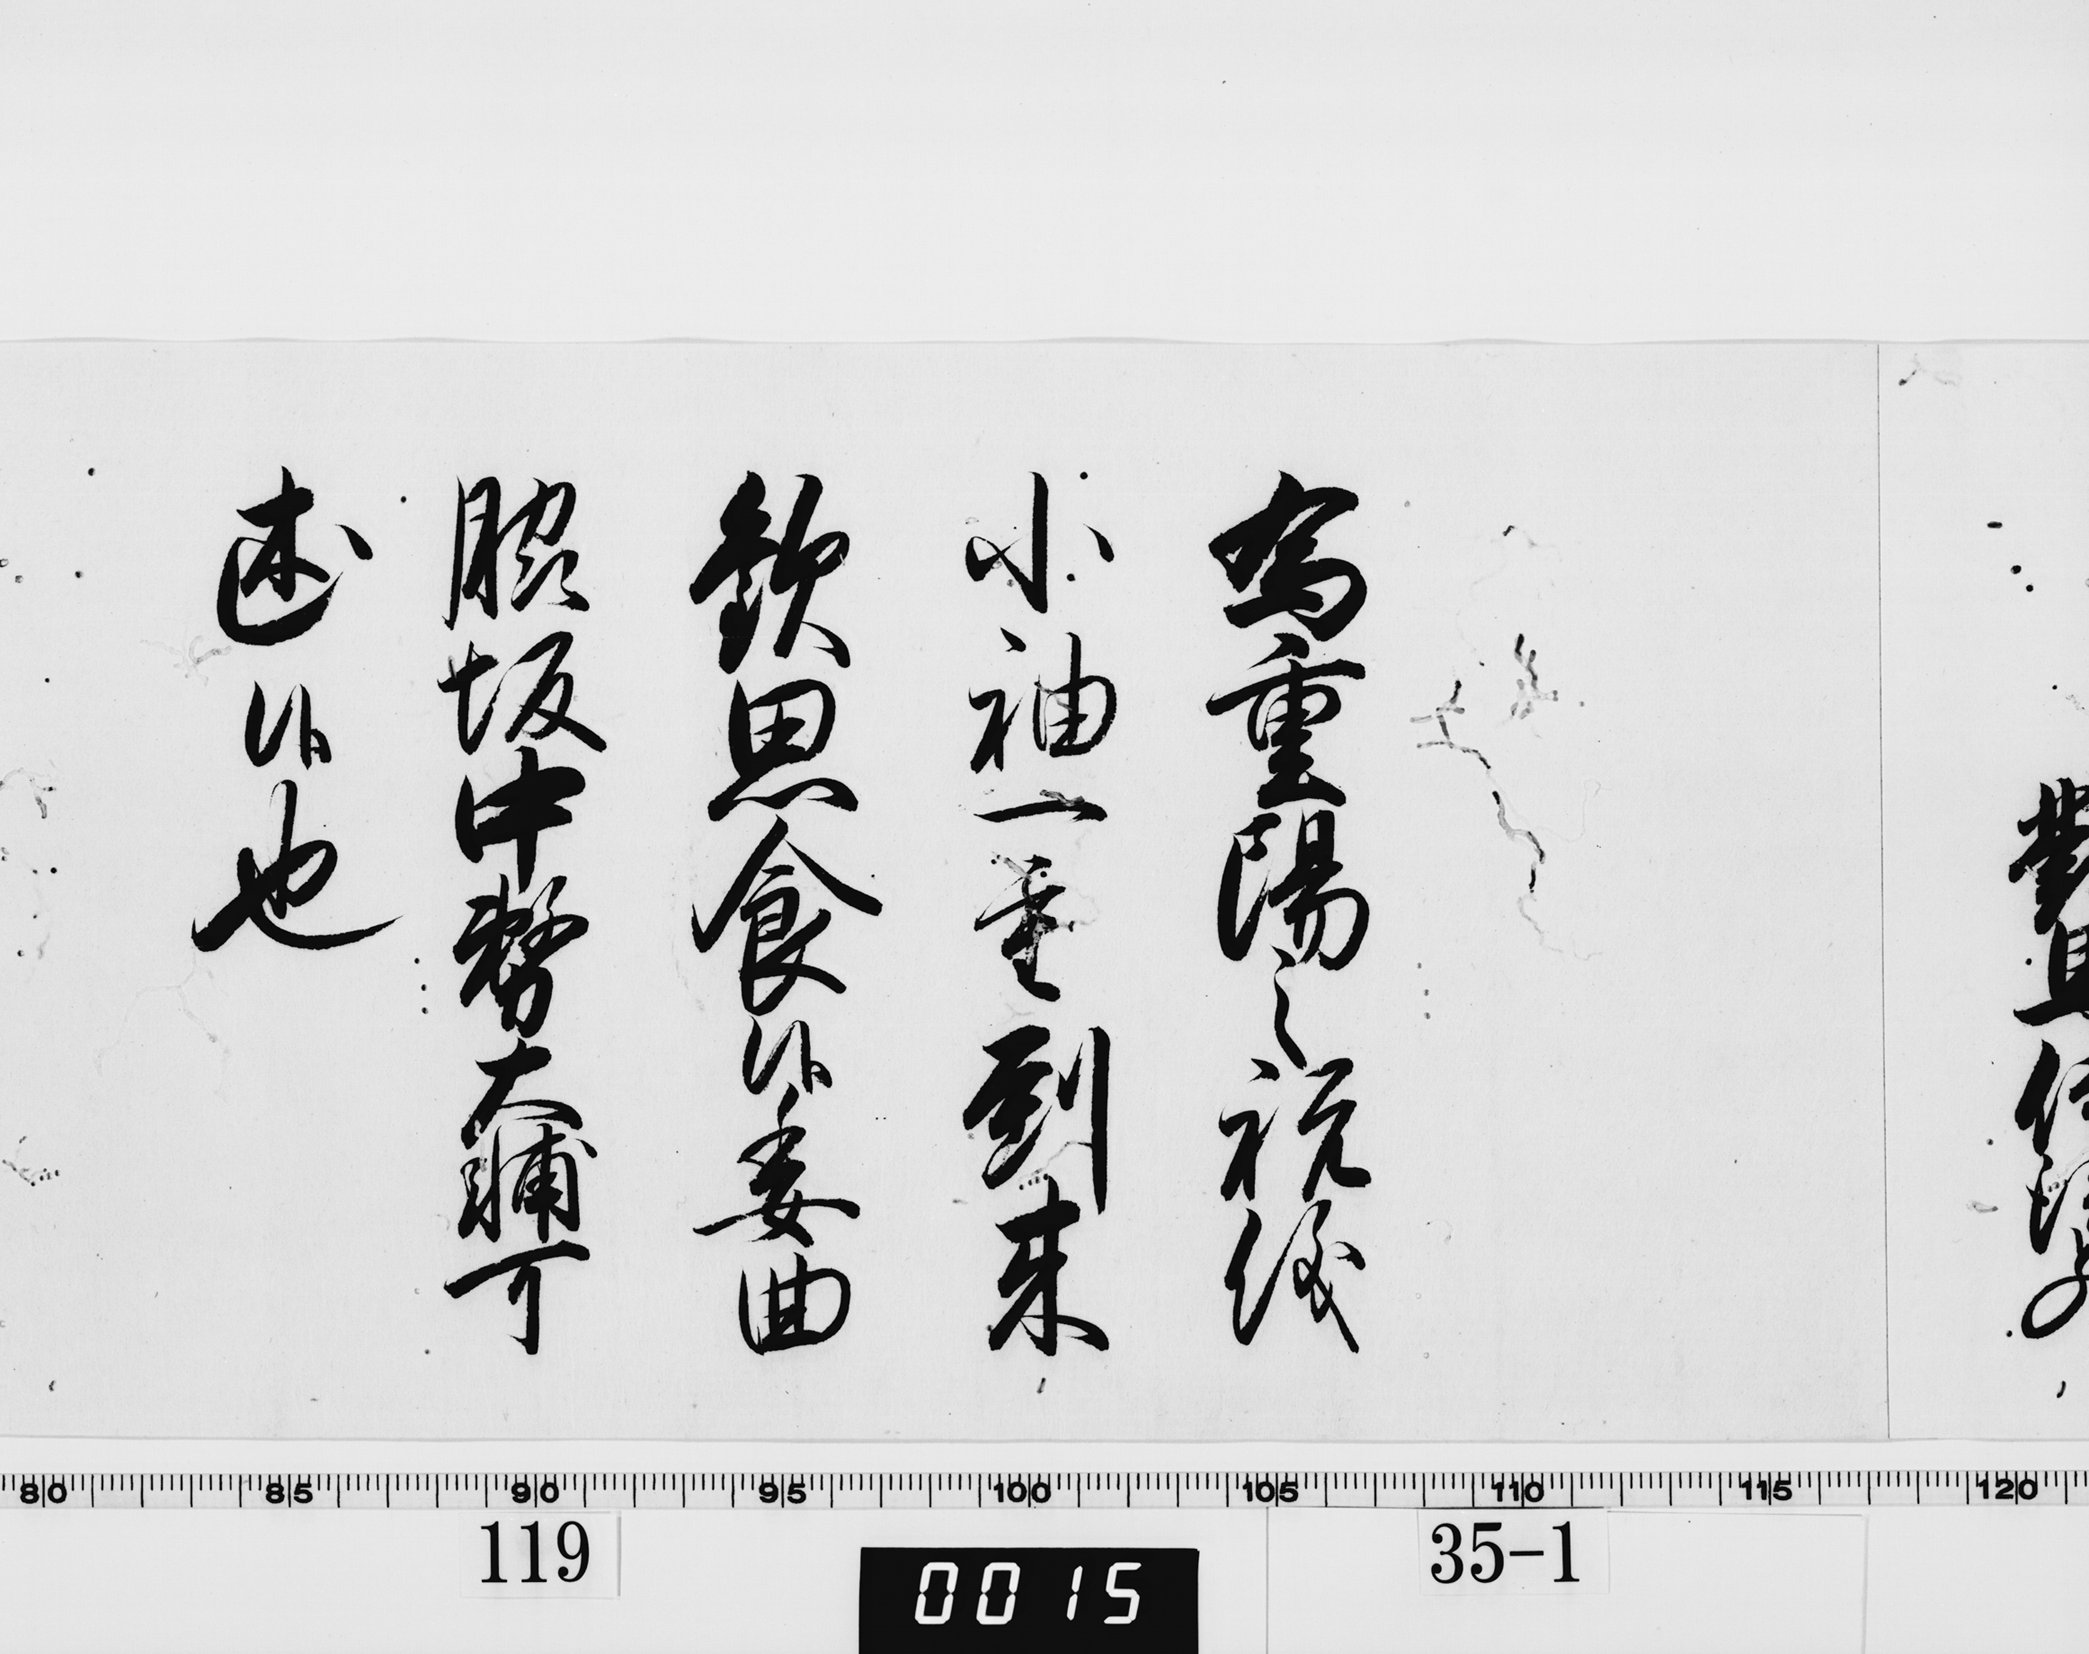 為重陽之祝儀
小袖一重到来
欽思食候委曲
脇坂中務大輔可
述候也
80 85 90 95 100 105 110 115 120
119
0015
35-1